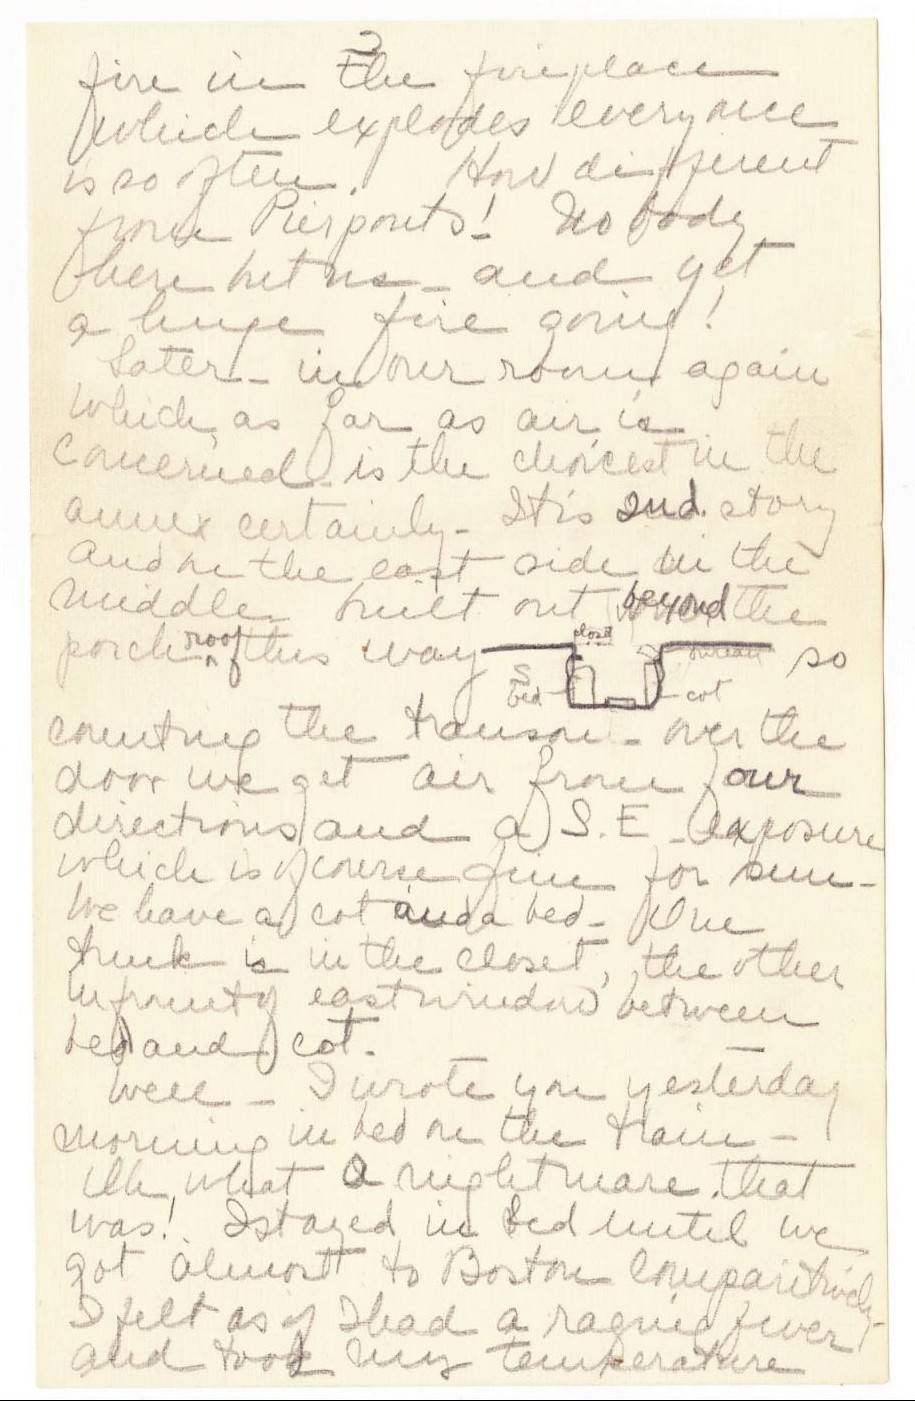 2
fire in the fireplace
which explodes every once
is so often. How different
from Pierponts! Nobody
here but us - and yet
a huge fire going!
Later - in our room again
which as far as air is
concerned - is the choicest in the
annex certainly - It is 2nd. story
and on the east side in the
middle - built out beyond the
porch roof this way so
closet
bureau
S
bed
cot
counting the transom - over the
door we get air from four
directions and a S.E. exposure
which is of course fine for sun -
We have a cot and a bed - One
trunk is in the closet, the other
in front of east window between
bed and cot.
Well - I wrote you yesterday
morning in bed on the train -
Oh, what a nightmare that
was! I stayed in bed until we
got almost to Boston comparitively -
I felt as if I had a raging fever
and took my temperature